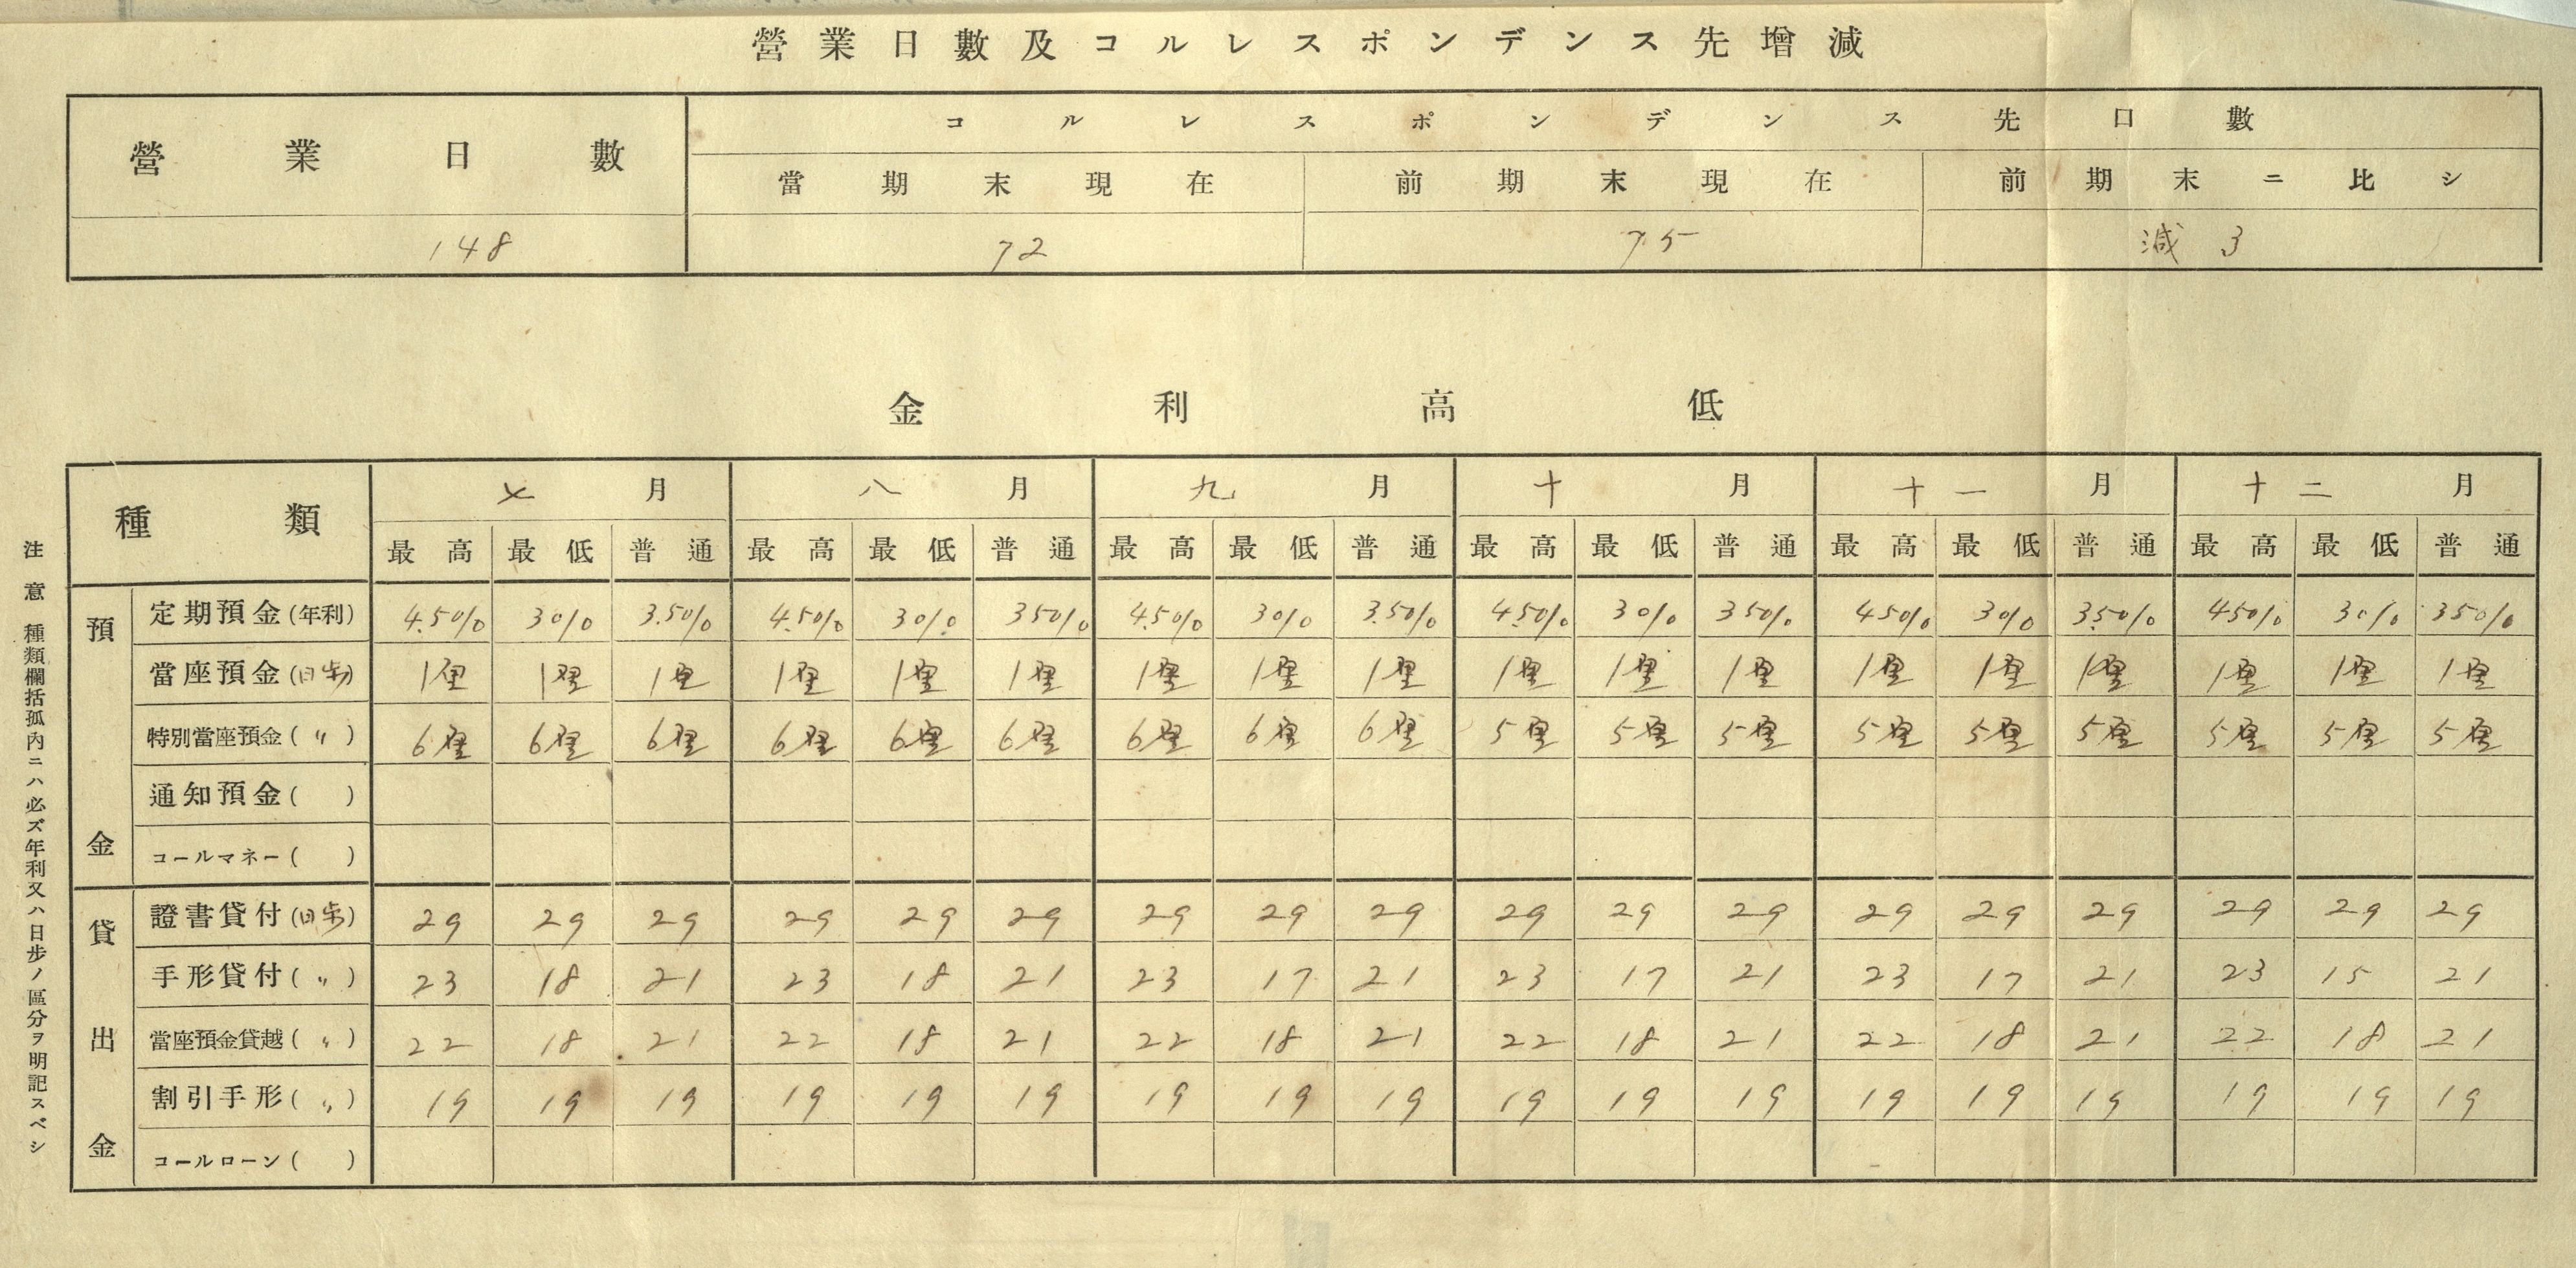 營業日數及コルレスポンデンス先增減
營業日數 コルレスポンデンス先口數
當期末現在 前期末現在 前期末ニ比シ
148 72 75 減 3
金利高低
種類 七月 八月 九月 十月 十一月 十二月
最高 最低 普通 最高 最低 普通 最高 最低 普通 最高 最低 普通 最高 最低 普通 最高 最低 普通
預金
定期預金(年利) 4.50% 30% 3.50% 4.50% 30% 350% 4.50% 30% 3.50% 4.50% 30% 350% 450% 30% 3.50% 450% 30% 350%
當座預金(日歩) 1厘 1厘 1厘 1厘 1厘 1厘 1厘 1厘 1厘 1厘 1厘 1厘 1厘 1厘 1厘 1厘 1厘 1厘
特別當座預金(〃) 6厘 6厘 6厘 6厘 6厘 6厘 6厘 6厘 6厘 5厘 5厘 5厘 5厘 5厘 5厘 5厘 5厘 5厘
通知預金( )
コールマネー( )
貸出金
證書貸付(日歩) 29 29 29 29 29 29 29 29 29 29 29 29 29 29 29 29 29 29
手形貸付(〃) 23 18 21 23 18 21 23 17 21 23 17 21 23 17 21 23 15 21
當座預金貸越(〃) 22 18 21 22 18 21 22 18 21 22 18 21 22 18 21 22 18 21
割引手形(〃) 19 19 19 19 19 19 19 19 19 19 19 19 19 19 19 19 19 19
コールローン( )
注意 種類欄括孤內ニハ必ズ年利又ハ日步ノ區分ヲ明記スベシ